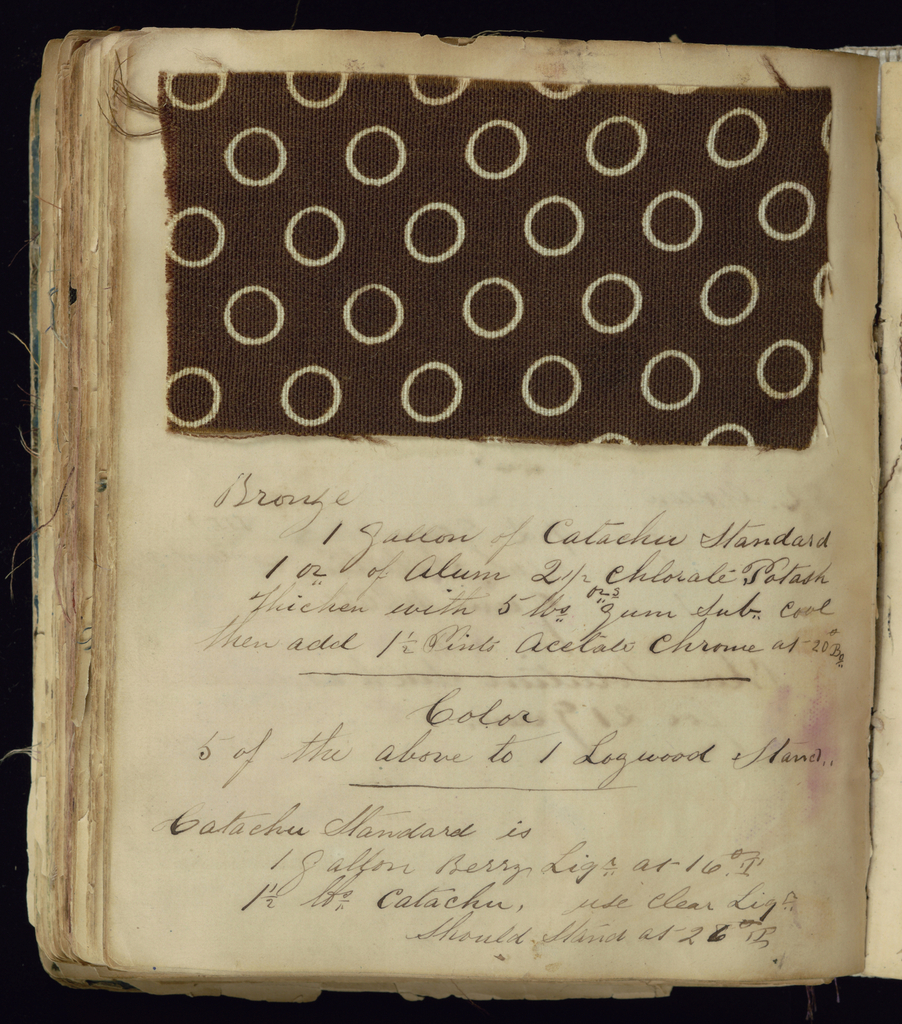 Bronze
1 Gallon of Catachu Standard
1 oz of Alum 2 1/2 ozs Chlorate Potash
thicken with 5 lbs Gum Sub. cool
then add 1 1/2 Pints Acetate Chrome at 20° Be
Color
5 of the above to 1 Logwood Stand..
Catachu Standard is
1 Gallon Berry Liqr at 16° T
1 1/2 lbs Catachu, use clear Liqr
Should Stand at 26° T